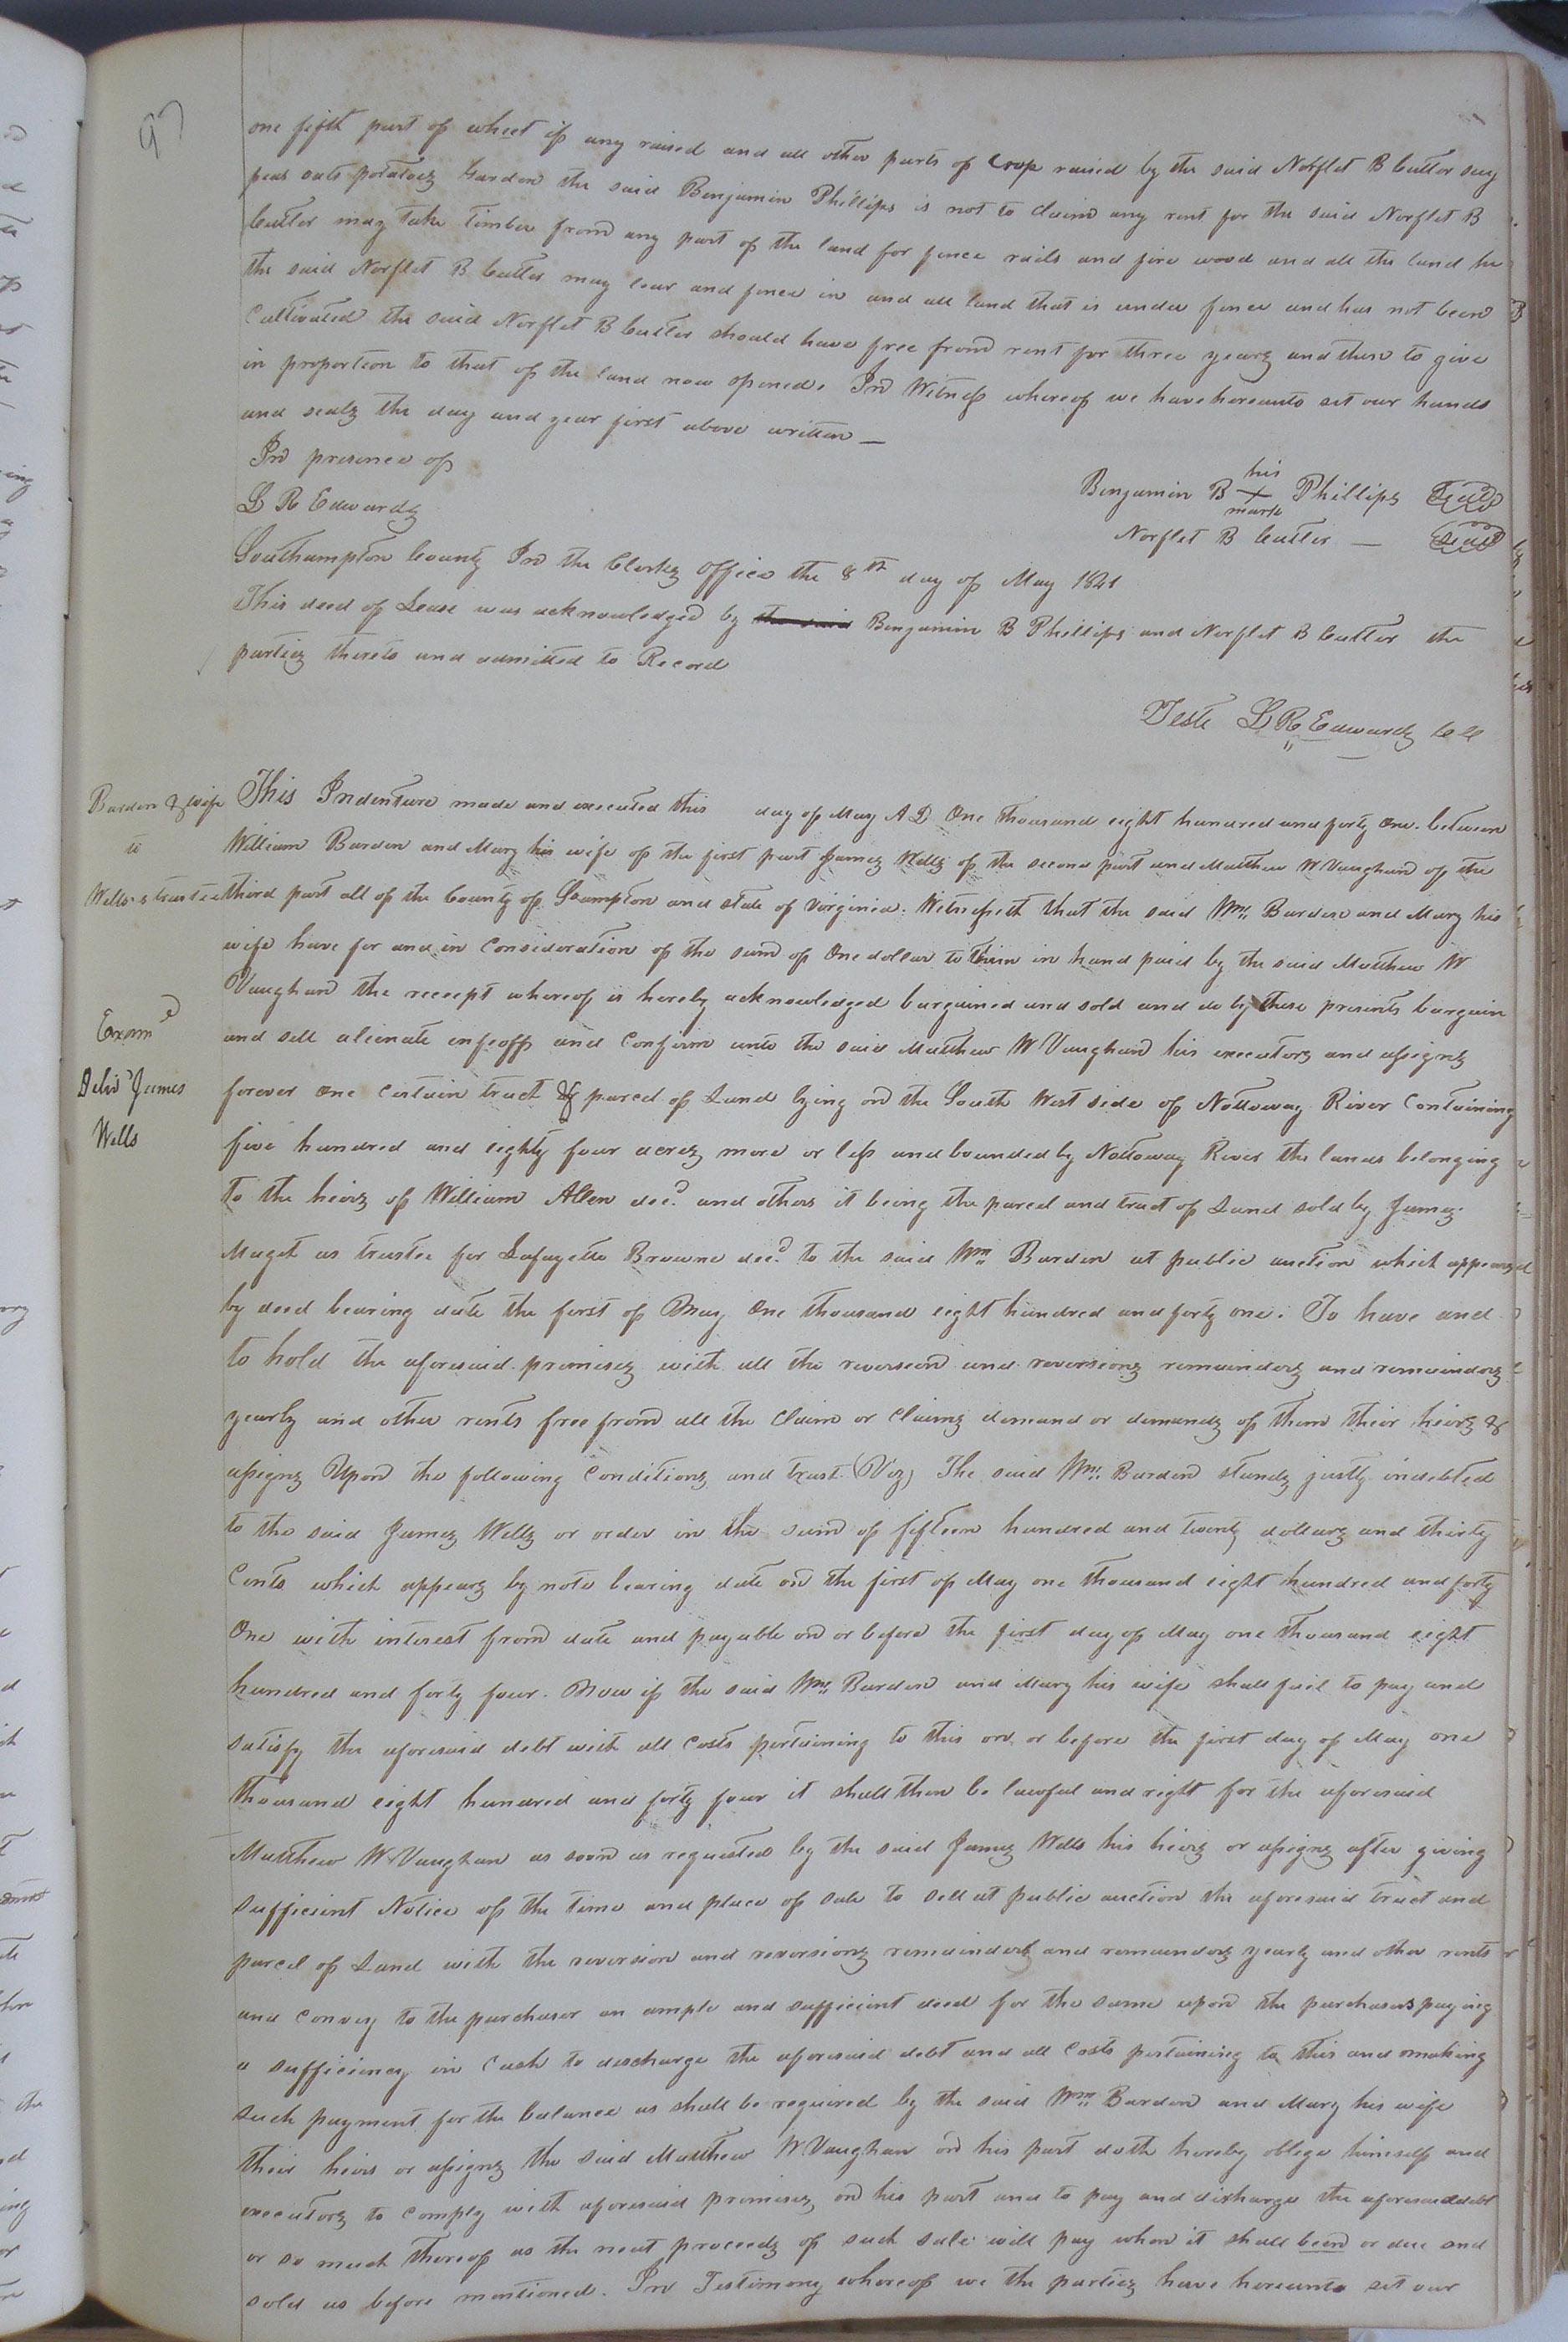 97
one fifth part of wheet if any raised and all other parts of Crop raised by the said Norflet B Cutler say
peas oats potatoes Garden the said Benjamin Phillips is not to claim any rent for the said Norflet B
Cutler may take timber from any part of the land for fence rails and fire wood and all the land he
the said Norflet B Cutler may lear and fence in and all land that is under fence and has not been
Cultivated the said Norflet B Cutler should have free from rent for three years and then to give
in proportion to that of the land now opened. In Witness whereof we have hereunto set our hands
and seals the day and year first above written —
In presence of
L R Edwards
his
Benjamin B + Phillips Seal
mark
Norflet B Cutler — Seal
Southampton County In the Clerks Office the 8th day of May 1841
This deed of Lease was acknowledged by the said Benjamin B Phillips and Norflet B Cutler the
parties thereto and admitted to Record
Teste L R Edwards
Burden & wife
to
Wells's trustee
Exam'd
Deliv'd James
Wells
This Indenture made and executed this day of May A D One thousand eight hundred and forty one. between
William Burden and Mary his wife of the first part James Wells of the second part and Matthew W Vaughan of the
third part all of the County of Sampton and state of Virginia. Witnesseth that the said Wm. Burden and Mary his
wife have for and in Consideration of the sum of One dollar to them in hand paid by the said Matthew W
Vaughan the receept whereof is hereby acknowledged bargained and sold and do by these presents bargain
and sell alienate enfeoff and Confirm unto the said Matthew W Vaughan his executors and assigns
forever one certain tract & parcel of Land lying on the South West side of Nottoway River Containing
five hundred and eighty four acres more or less and bounded by Nottoway River the lands belonging
to the heirs of William Allen decd. and others it being the parcel and tract of Land sold by James
Maget as trustee for Lafayette Browne decd. to the said Wm Burden at public auction which appeared
by deed bearing date the first of May One thousand eight hundred and forty one. To have and
to hold the aforesaid premises with all the reversion and reversions remainders and remainders
yearly and other rents free from all the Claim or Claims demand or demands of them their heirs &
assigns Upon the following Conditions and trust (Viz) The said Wm. Burden stands justly indebted
to the said James Wells or order in the sum of fifteen hundred and twenty dollars and thirty
Cents which appears by note bearing date on the first of May one thousand eight hundred and forty
One with interest from date and payable on or before the first day of May one thousand eight
hundred and forty four. Now if the said Wm. Burden and Mary his wife shall fail to pay and
satisfy the aforesaid debt with all Costs pertaining to this on or before the first day of May one
thousand eight hundred and forty four it shall then be lawful and right for the aforesaid
Matthew W Vaughan as soon as requested by the said James Wells his heirs or assigns after giving
sufficient Notice of the time and place of sale to sell at public auction the aforesaid tract and
parcel of Land with the reversion and reversions remainders and remainders yearly and other rents
and convey to the purchaser an ample and sufficient deed for the same upon the purchasers paying
a sufficiency in Cash to discharge the aforesaid debt and all Costs pertaining to this and making
such payment for the balance as shall be required by the said Wm Burden and Mary his wife
their heirs or assigns the said Matthew W Vaughan on his part doth hereby oblige himself and
executors to comply with aforesaid premises on his part and to pay and discharge the aforesaid debt
or so much thereof as the neat proceeds of such sale will pay when it shall been or due and
sold as before mentioned. In Testimony whereof we the parties have hereunto set our